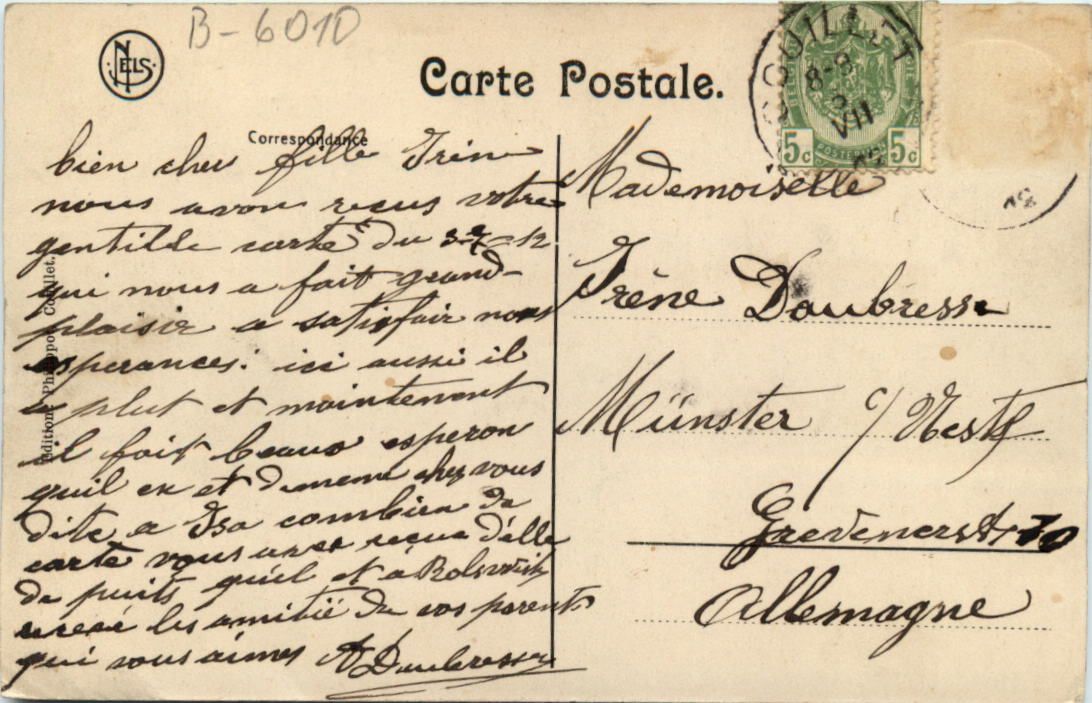 B-6010
NELS
Carte Postale.
COUILLET
8-9
VII
12
5c POSTERIJEN 5c
12
Correspondance
bien cher fille Irèn
nous avon reçus votre
gentille carte du 3-7-12
qui nous a fait grand
plaisir a satisfair nous
esperances. ici aussi il
a plut et maintenent
il fait beaux esperon
quil en et de meme chez vous
dite a Isa combien de
carte vous avez reçue d'elle
de puits quil et a
les amitié de vos parents
qui vous aimes A Daubresse
Editions Philippot, Couillet.
Mademoiselle
Irène Daubresse
Münster c/ Westf
Grevenerstr 70
Allemagne